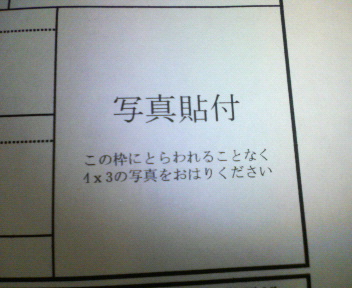 写真貼付
この枠にとらわれることなく
4x3の写真をおはりください